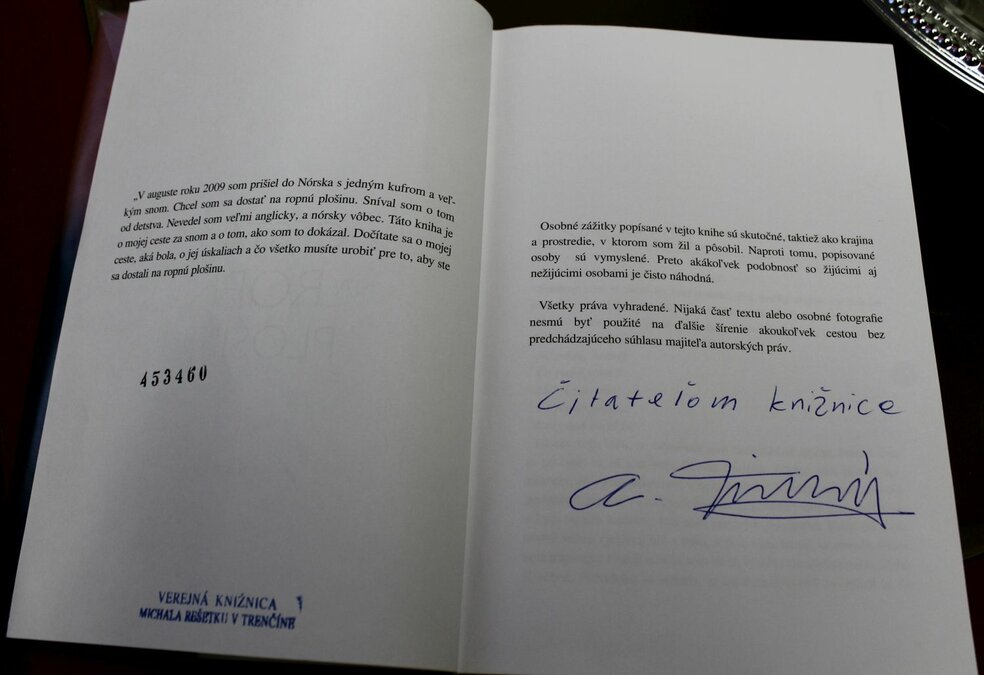 „V auguste roku 2009 som prišiel do Nórska s jedným kufrom a veľ-
kým snom. Chcel som sa dostať na ropnú plošinu. Sníval som o tom
od detstva. Nevedel som veľmi anglicky, a nórsky vôbec. Táto kniha je
o mojej ceste za snom a o tom, ako som to dokázal. Dočítate sa o mojej
ceste, aká bola, o jej úskaliach a čo všetko musíte urobiť pre to, aby ste
sa dostali na ropnú plošinu.
453460
VEREJNÁ KNIŽNICA
MICHALA REŠETKU V TRENČÍNE
Osobné zážitky popísané v tejto knihe sú skutočné, taktiež ako krajina
a prostredie, v ktorom som žil a pôsobil. Naproti tomu, popisované
osoby sú vymyslené. Preto akákoľvek podobnosť so žijúcimi aj
nežijúcimi osobami je čisto náhodná.
Všetky práva vyhradené. Nijaká časť textu alebo osobné fotografie
nesmú byť použité na ďalšie šírenie akoukoľvek cestou bez
predchádzajúceho súhlasu majiteľa autorských práv.
Čitateľom knižnice